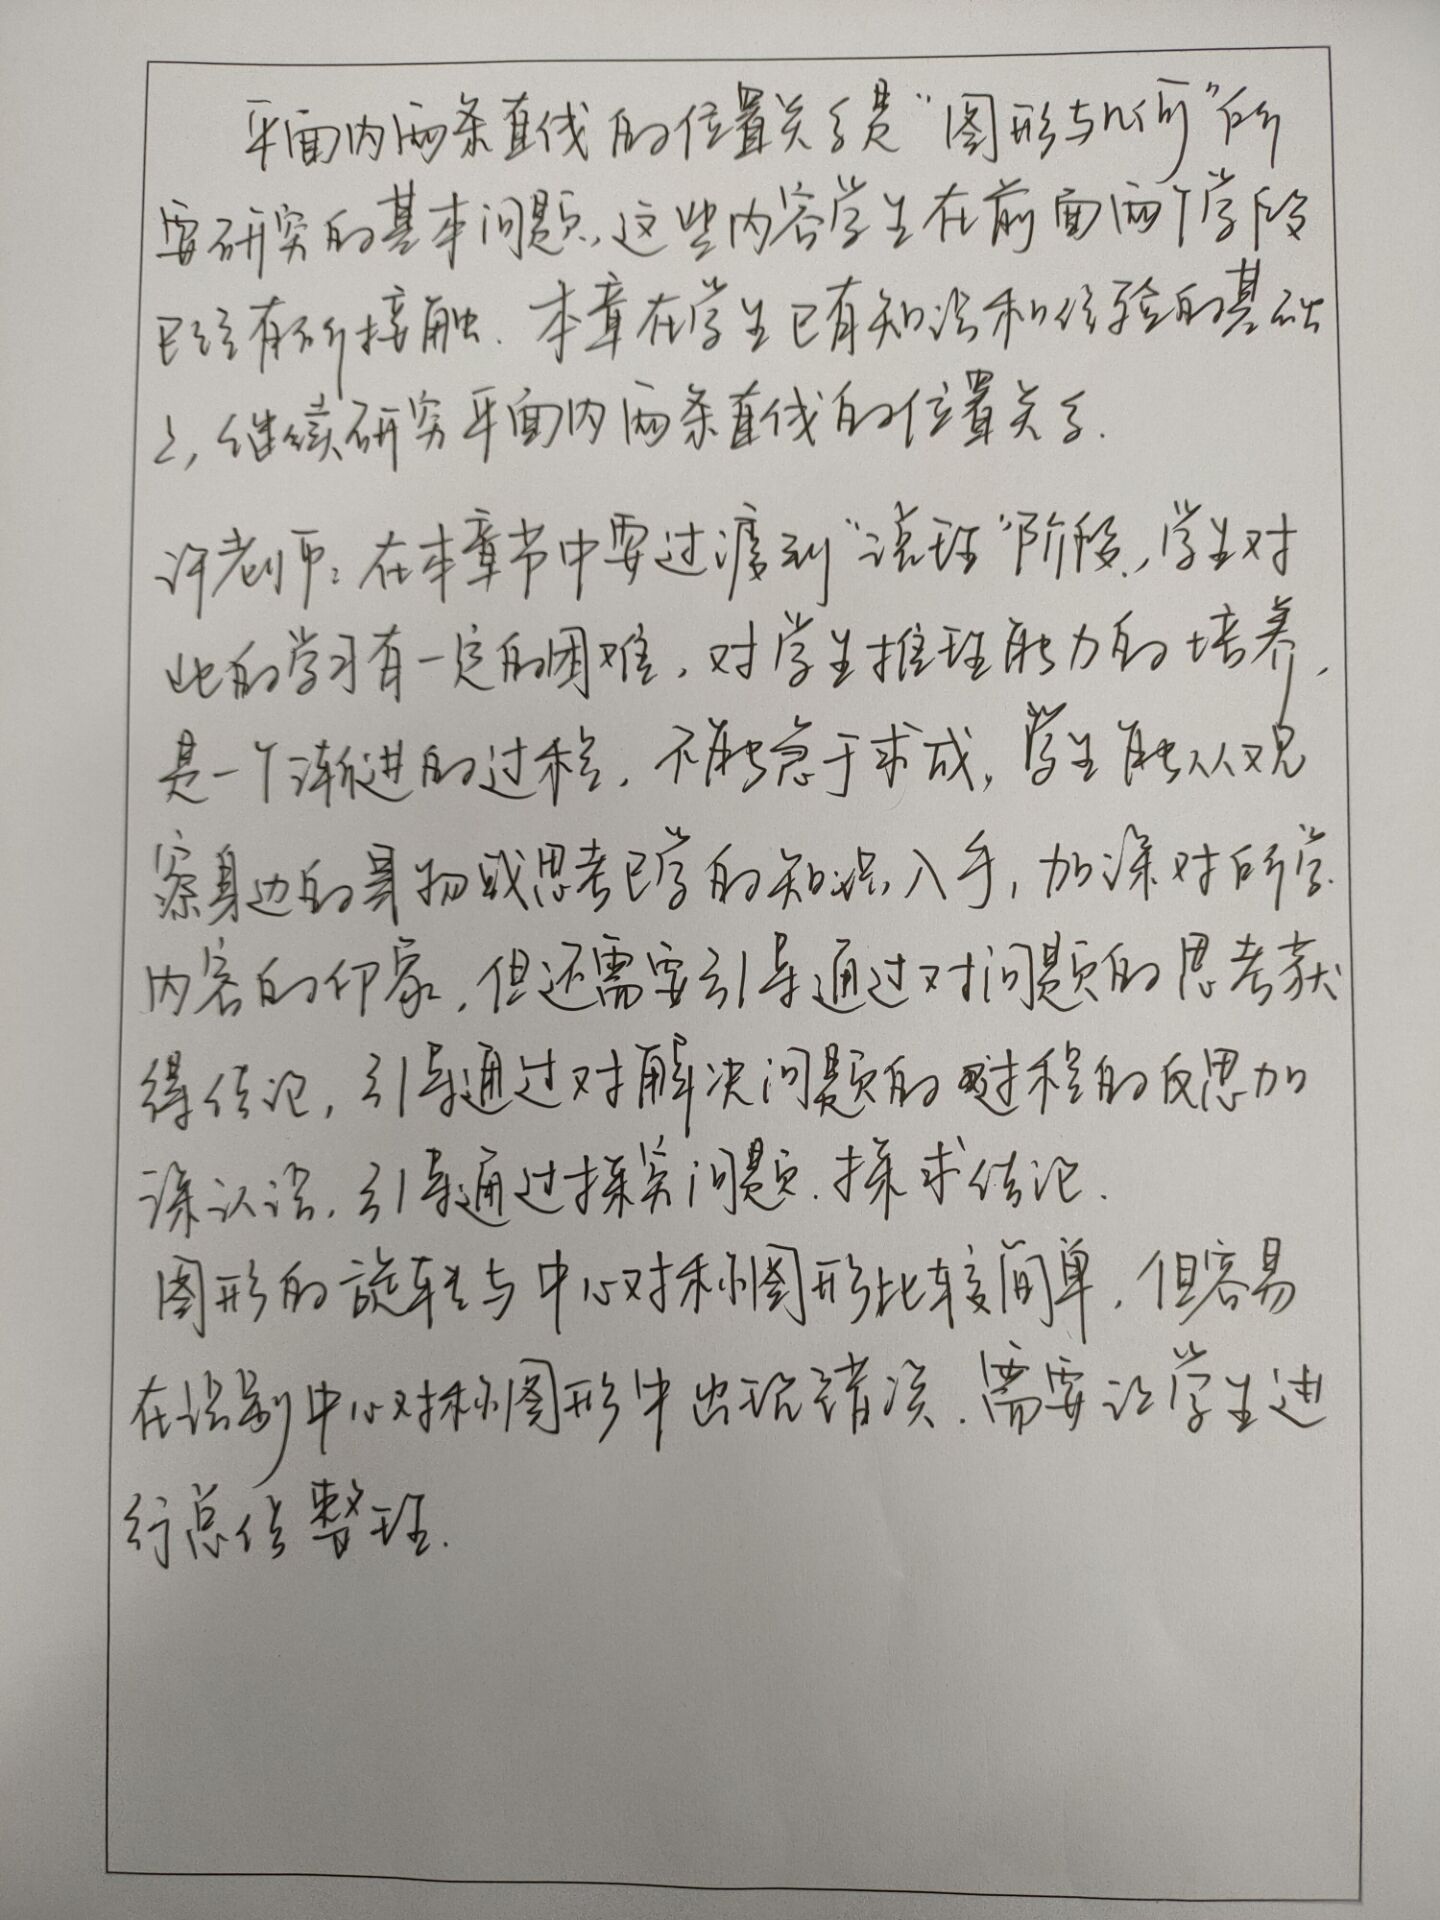 平面内两条直线的位置关系是“图形与几何”所
要研究的基本问题,这些内容学生在前面两个学段
已经有所接触.本章在学生已有知识和经验的基础
上,继续研究平面内两条直线的位置关系.
许老师:在本章节中要过渡到“说理”阶段,学生对
此的学习有一定的困难,对学生推理能力的培养,
是一个渐进的过程,不能急于求成,学生能从观
察身边的事物或思考已学的知识入手,加深对所学
内容的印象,但还需要引导通过对问题的思考获
得结论,引导通过对解决问题的过程的反思加
深认识,引导通过探究问题.探求结论.
图形的旋转与中心对称图形比较简单,但容易
在识别中心对称图形中出现错误.需要让学生进
行总结整理.